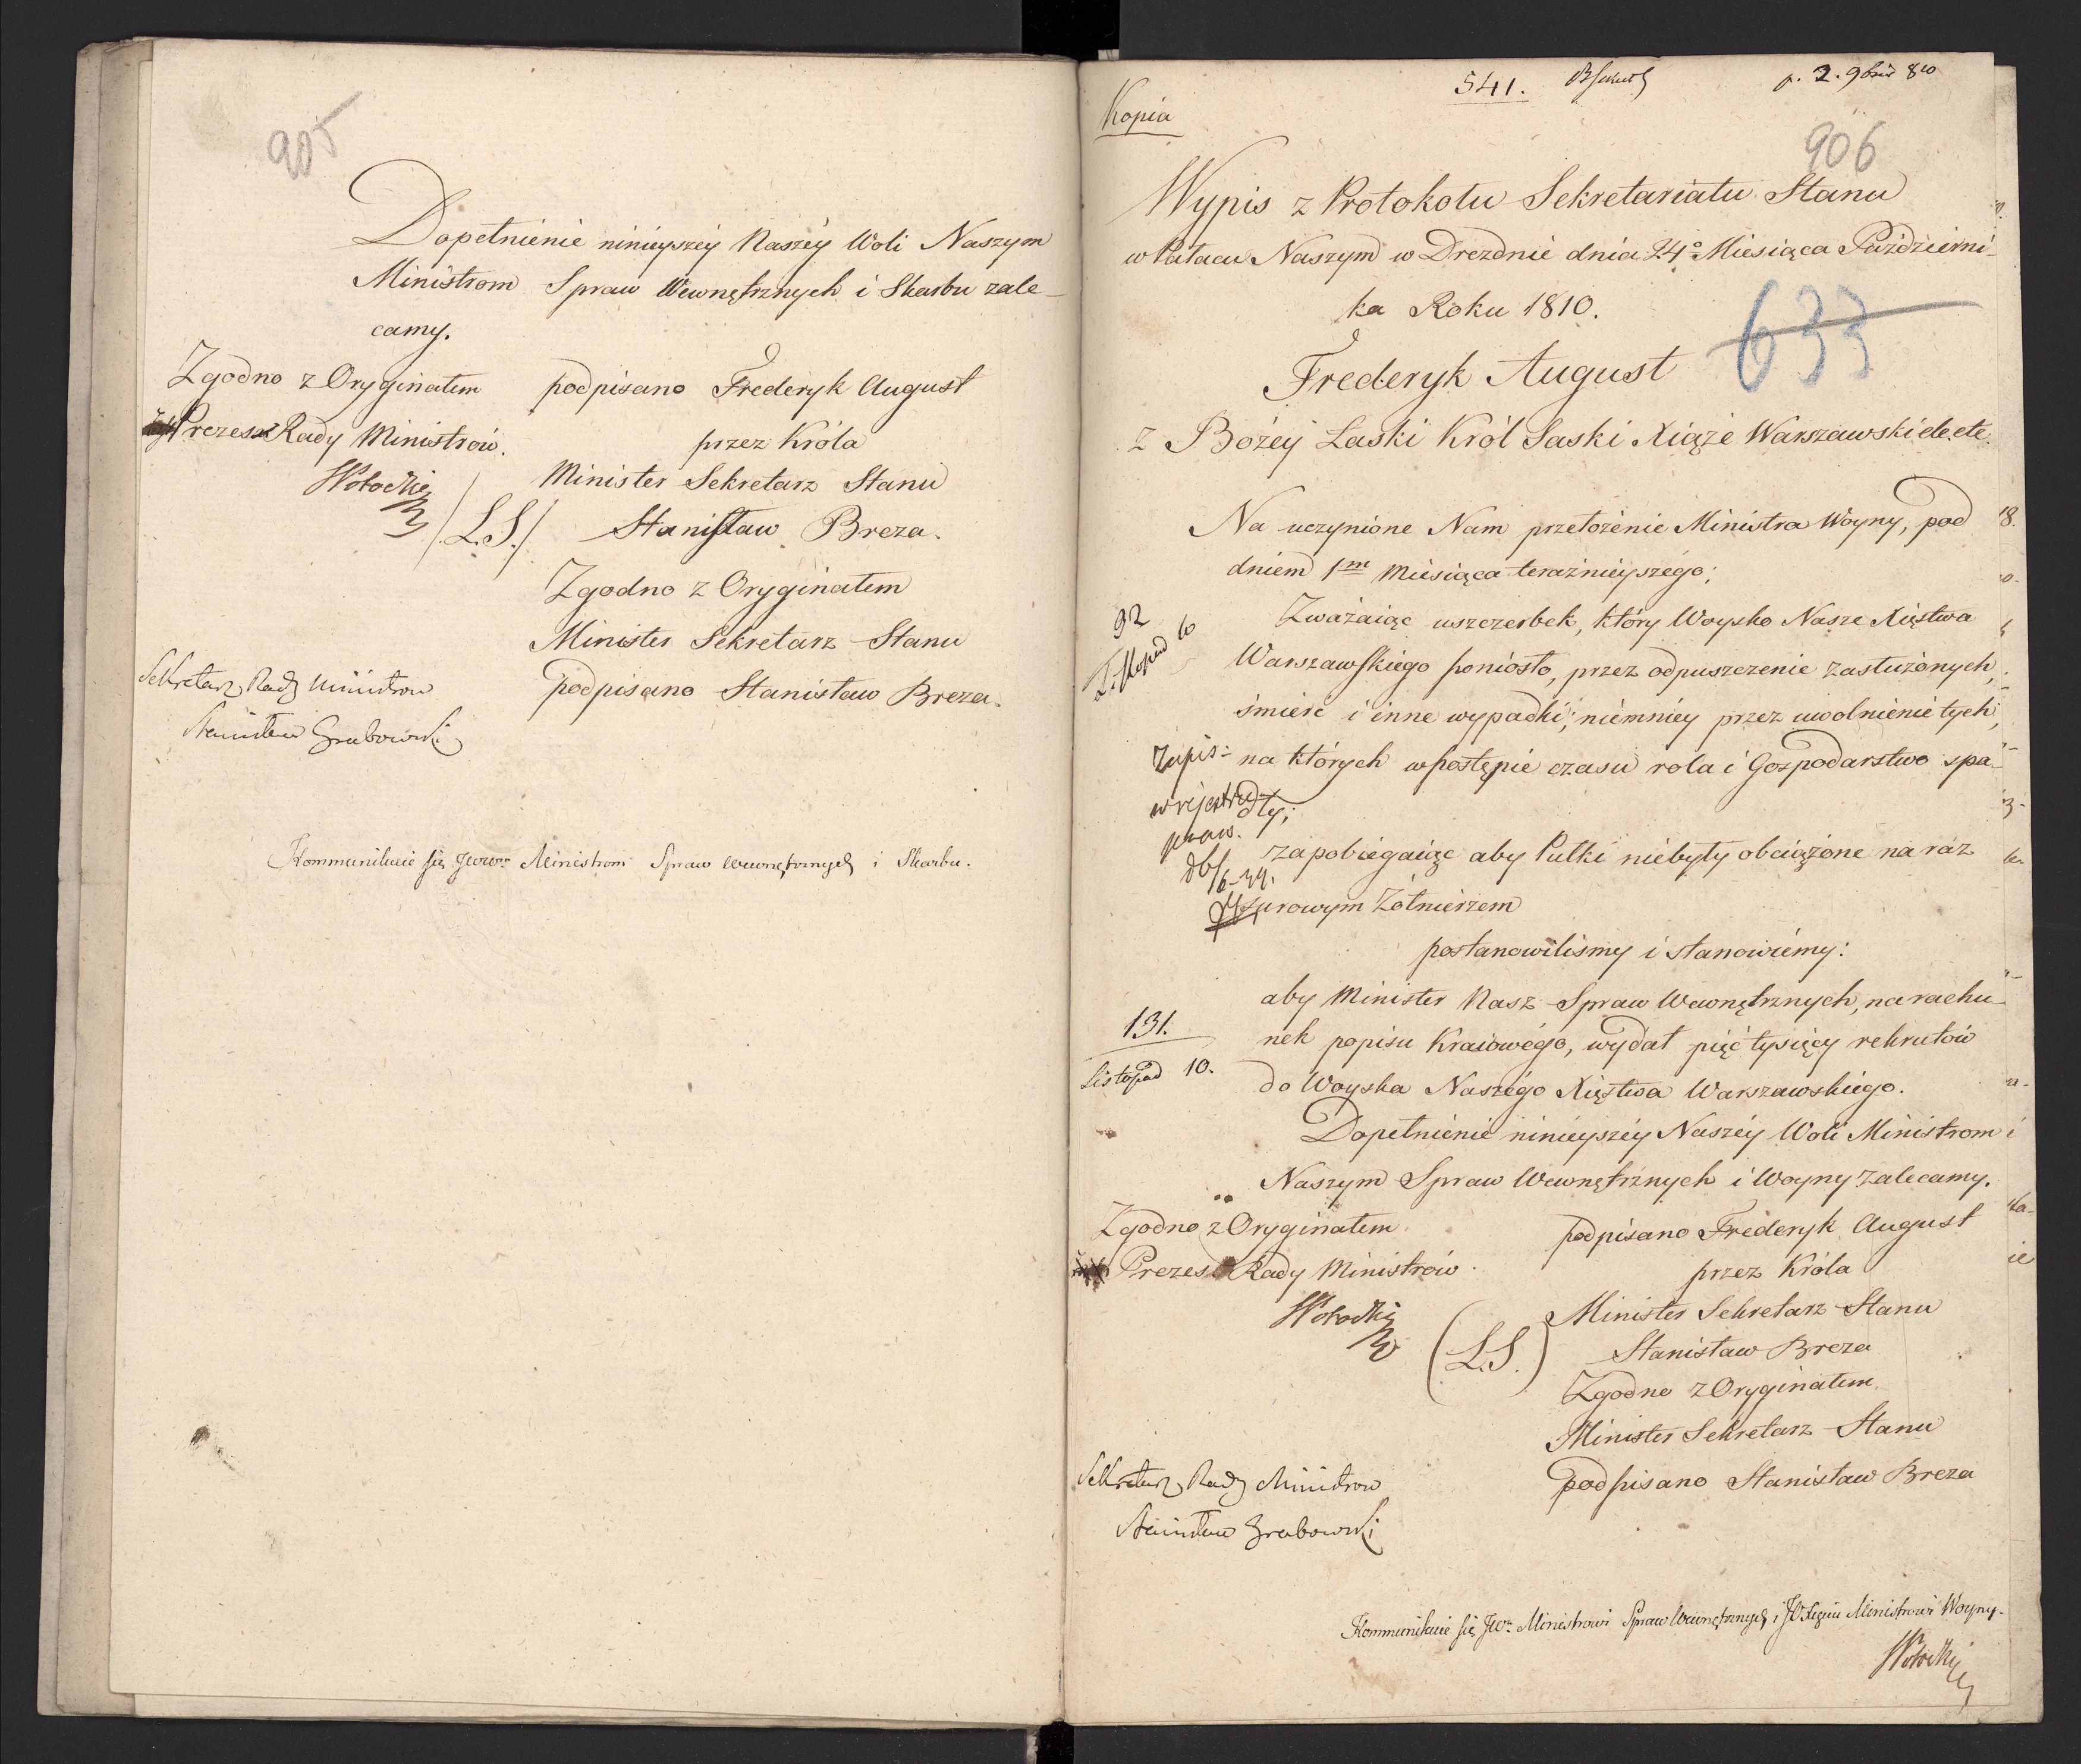 905
Dopełnienie ninieyszéy Naszéy Woli Naszym
Ministrom Spraw Wewnętrznych i Skarbu zale-
camy.
Zgodno z Oryginałem
Prezes Rady Ministrów.
podpisano Frederyk August
przez Króla
Minister Sekretarz Stanu
/L.S./ Stanisław Breza.
Zgodno z Oryginałem
Minister Sekretarz Stanu
podpisano Stanisław Breza.
Sekretarz Rady Ministrow
Stanisław Grabowski
Kommunikuie się Ministrom Spraw Wewnętrznych i Skarbu.
Kopia
541.
906
Wypis z Protokołu Sekretariatu Stanu
w Pałacu Naszym w Dreznie dnia 24º Miesiąca Październi-
ka Roku 1810.
633
Frederyk August
z Bożéy Łaski Król Saski Xiąże Warszawski etc. etc.
Na uczynione Nam przełożenie Ministra Woyny, pod
dniem 1m Miesiąca teraźnieyszégo;
92
Listopad 10
Zważaiąc uszczerbek, który Woysko Nasze Xięstwa
Warszawskiego poniosło, przez odpuszczenie zasłużonych,
śmierć i inne wypadki; niemniéy przez uwolnienie tych,
na których w postępie czasu rola i Gospodarstwo spa-
dły;
Zapis:
w rejestrze
zapobiegaiąc aby Pułki niebyły obciążone na raz
surowym Żołnierzem
postanowiliśmy i stanowiémy:
aby Minister Nasz Spraw Wewnętrznych, na rachu-
nek popisu Kraiowégo, wydał pięć tysięcy rekrutów
do Woyska Naszégo Xięstwa Warszawskiego.
131.
Listopad 10.
Dopełnienie ninieyszéy Naszéy Woli Ministrom
Naszym Spraw Wewnętrznych i Woyny zalecamy.
Zgodno z Oryginałem
Prezes Rady Ministrów
podpisano Frederyk August
przez Króla
Minister Sekretarz Stanu
(L.S.) Stanisław Breza
Zgodno z Oryginałem
Minister Sekretarz Stanu
podpisano Stanisław Breza
Sekretarz Rady Ministrow
Stanisław Grabowski
Kommunikuie się Ministrowi Spraw Wewnętrznych i Ministrowi Woyny.